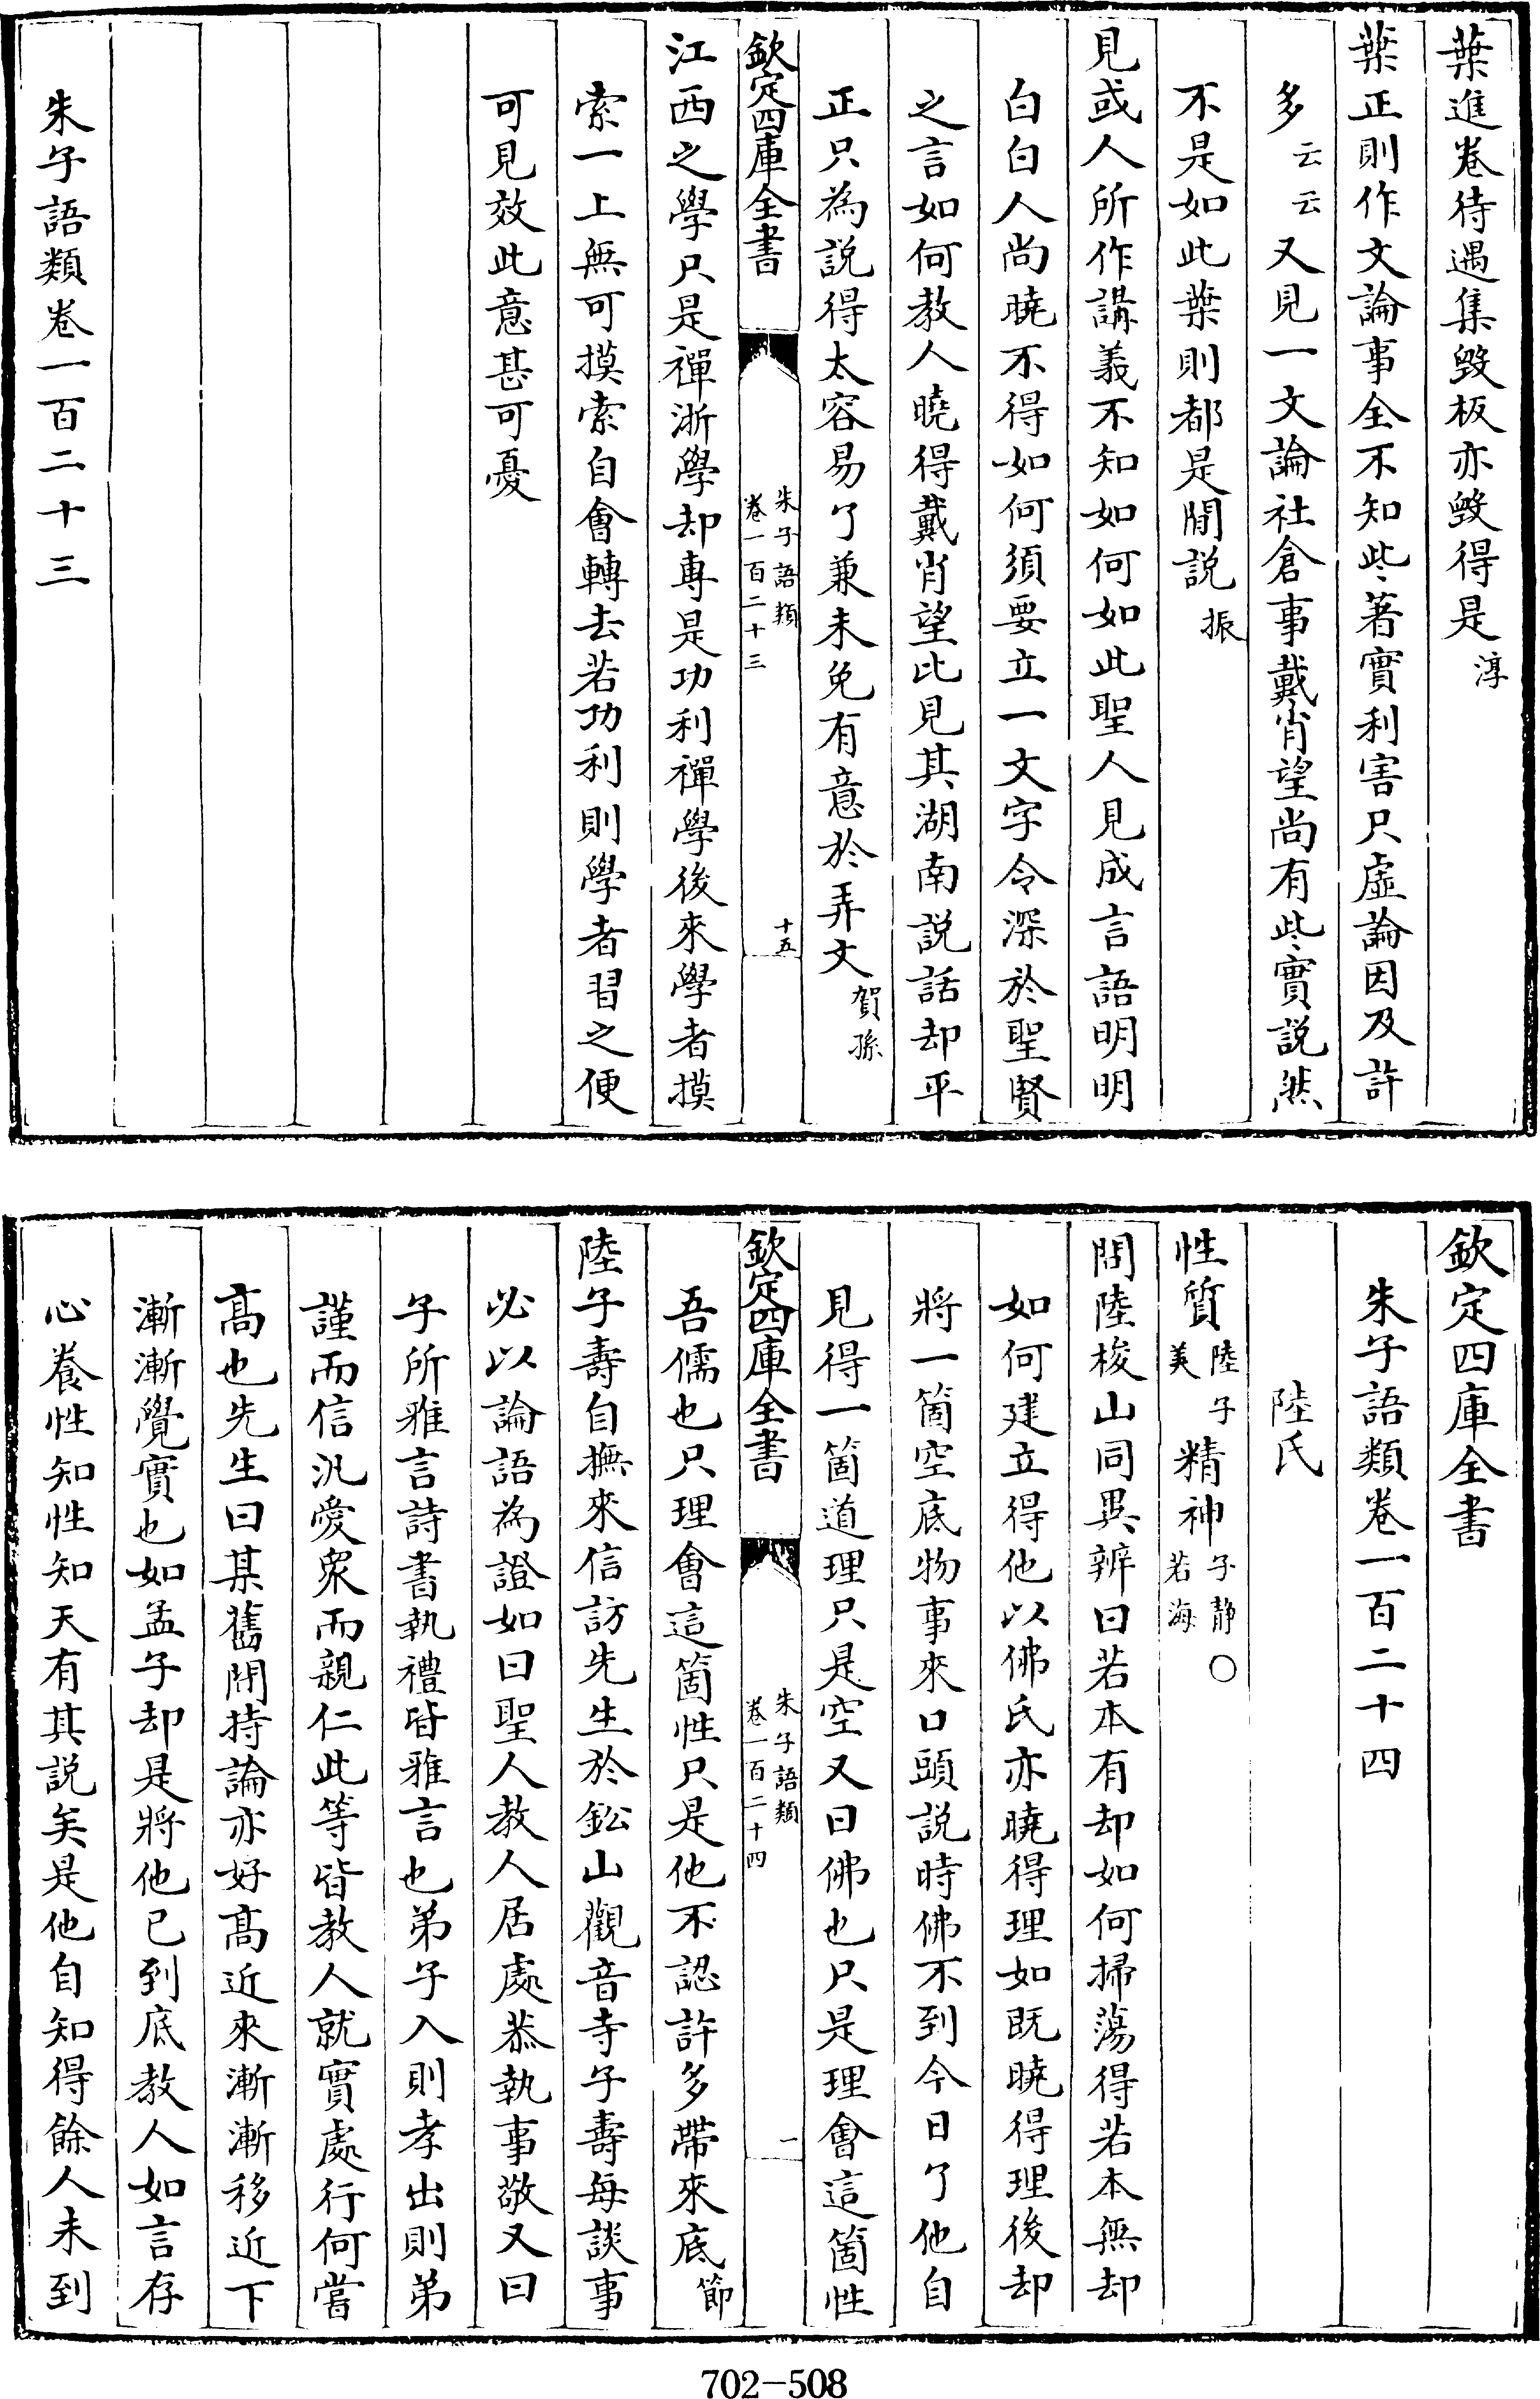 葉進卷待遇集毀板亦毀得是淳
葉正則作文論事全不知些著實利害只虛論因及許
多云云又見一文論社倉事戴肖望尚有些實說然
不是如此葉則都是閒說振
見或人所作講義不知如何如此聖人見成言語明明
白白人尚曉不得如何須要立一文字令深於聖賢
之言如何教人曉得戴肖望比見其湖南說話却平
正只為說得太容易了兼未免有意於弄文賀孫
欽定四庫全書
朱子語類
卷一百二十三
十五
江西之學只是禪浙學却專是功利禪學後來學者摸
索一上無可摸索自會轉去若功利則學者習之便
可見效此意甚可憂
朱子語類卷一百二十三
欽定四庫全書
朱子語類卷一百二十四
陸氏
性質陸子美精神子靜若海○
問陸梭山同異辨曰若本有却如何掃蕩得若本無却
如何建立得他以佛氏亦曉得理如既曉得理後却
將一箇空底物事來口頭說時佛不到今日了他自
見得一箇道理只是空又曰佛也只是理會這箇性
欽定四庫全書
朱子語類
卷一百二十四
一
吾儒也只理會這箇性只是他不認許多帶來底節
陸子壽自撫來信訪先生於鈆山觀音寺子壽每談事
必以論語為證如曰聖人教人居處恭執事敬又曰
子所雅言詩書執禮皆雅言也弟子入則孝出則弟
謹而信汎愛衆而親仁此等皆教人就實處行何嘗
髙也先生曰某舊閒持論亦好髙近來漸漸移近下
漸漸覺實也如孟子却是將他已到底教人如言存
心養性知性知天有其說矣是他自知得餘人未到
702-508